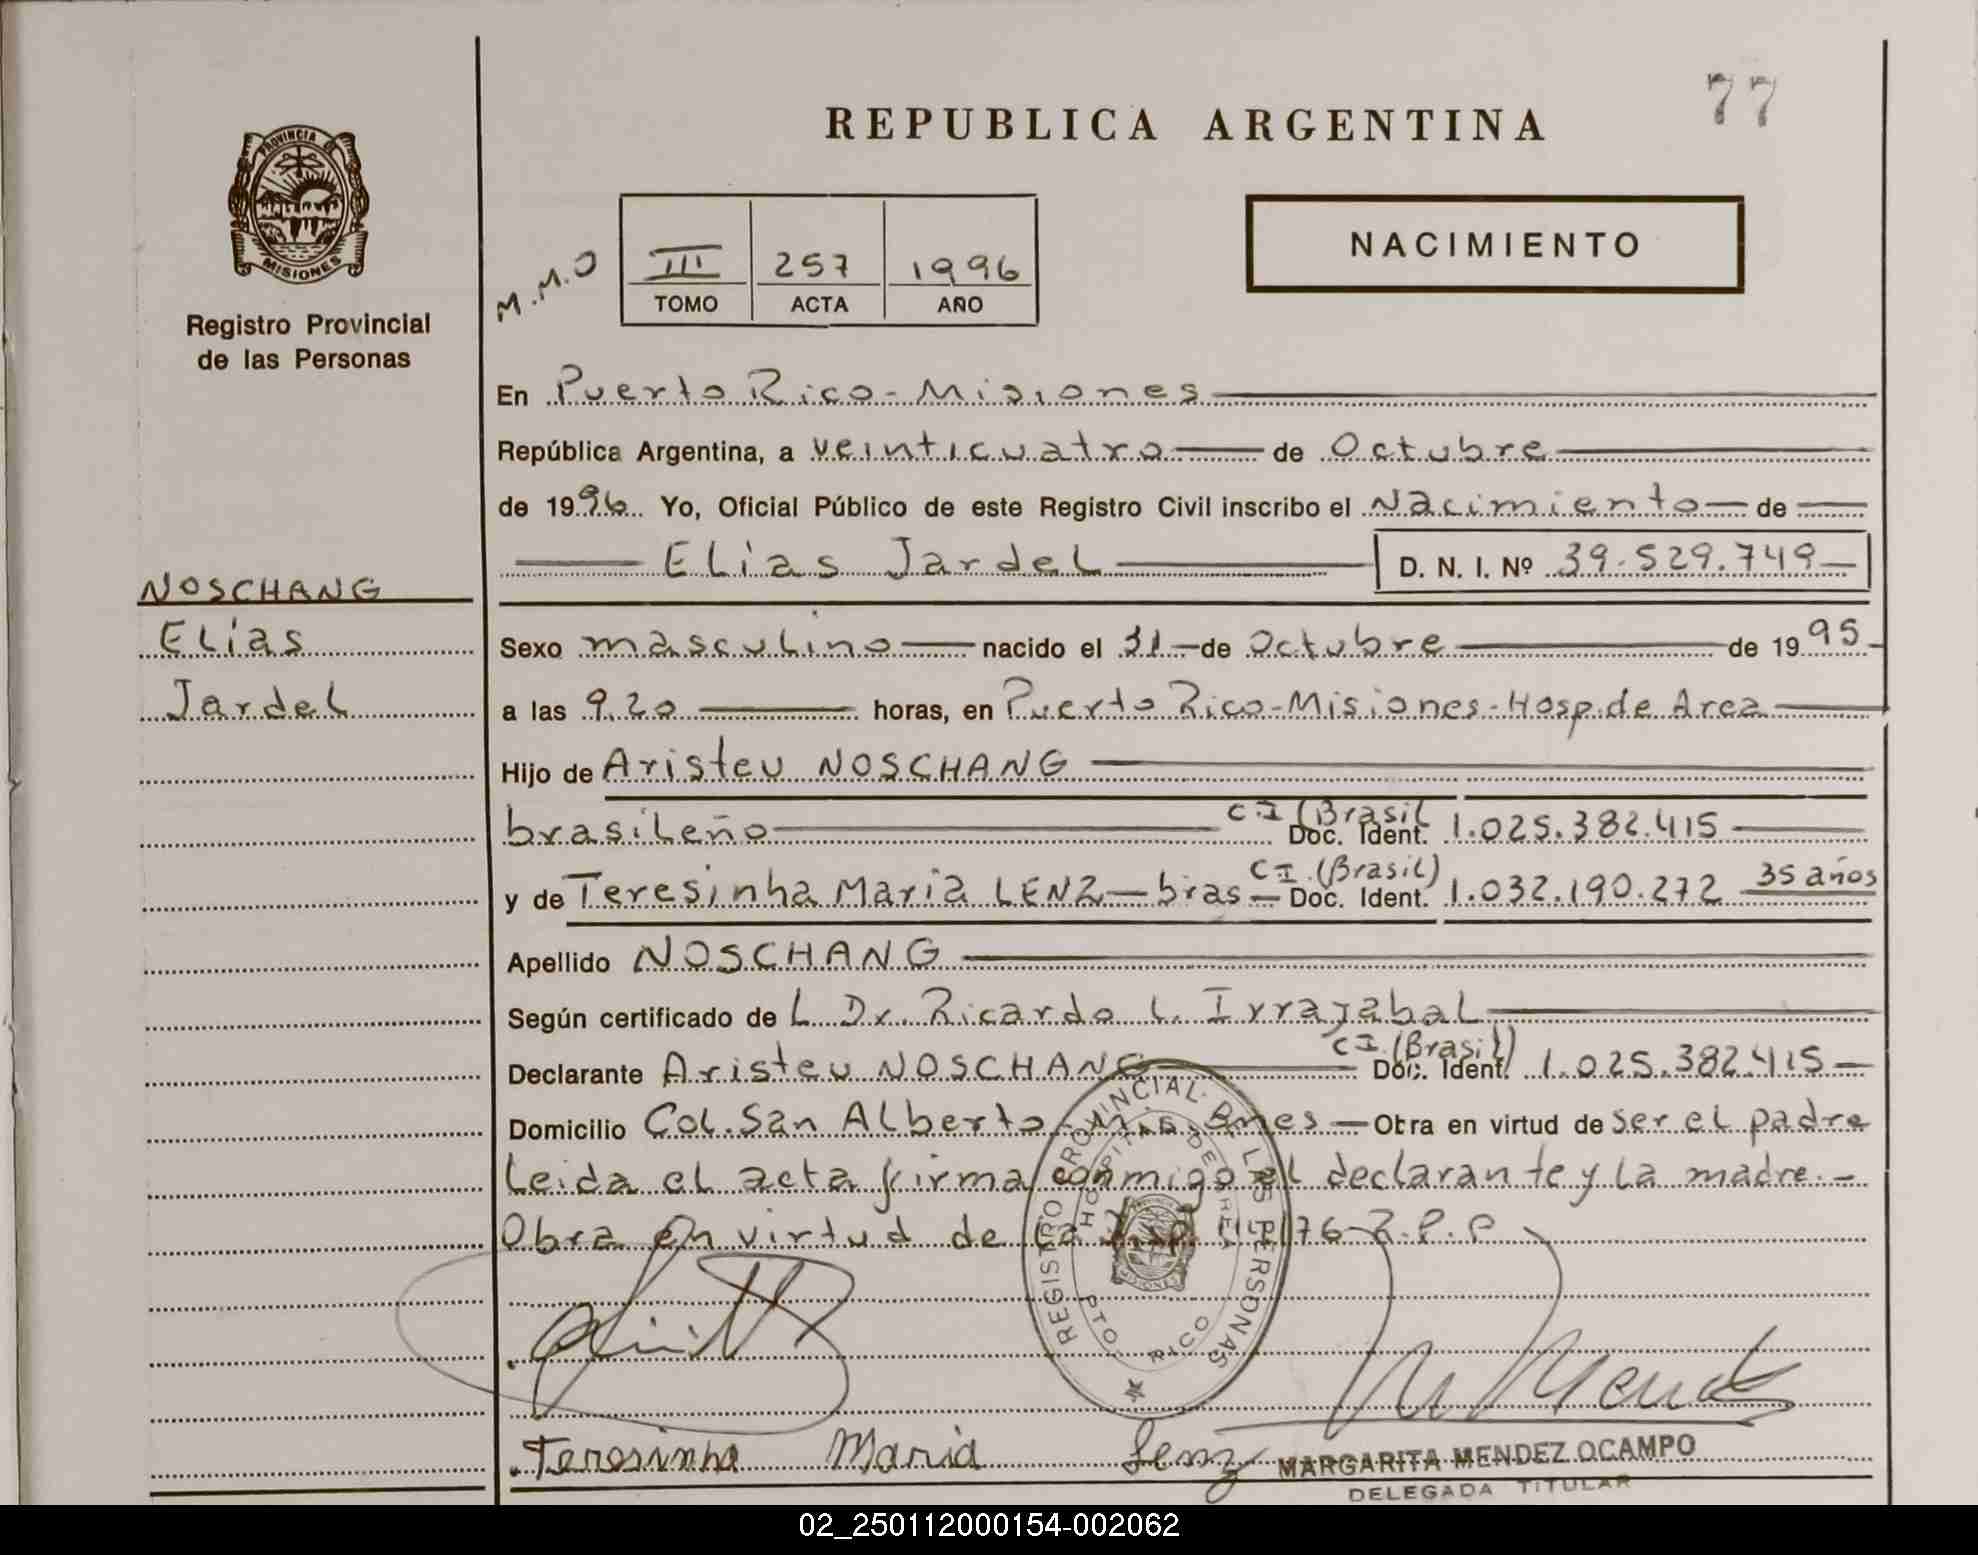 77
REPUBLICA ARGENTINA
PROVINCIA DE
MISIONES
Registro Provincial
de las Personas
M.M.O
III 257 1996
TOMO ACTA AÑO
NACIMIENTO
En Puerto Rico - Misiones
República Argentina, a veinticuatro de Octubre
de 1996 Yo, Oficial Público de este Registro Civil inscribo el Nacimiento de
Elías Jardel D. N. I. Nº 39.529.749
NOSCHANG
Elías
Jardel
Sexo masculino nacido el 31 de Octubre de 1995
a las 9.20 horas, en Puerto Rico - Misiones - Hosp. de Area
Hijo de Aristeu NOSCHANG
brasileño C.I (Brasil Doc. Ident. 1.025.382.415
y de Teresinha Maria LENZ - bras - C.I. (Brasil) Doc. Ident. 1.032.190.272 35 años
Apellido NOSCHANG
Según certificado de L Dr. Ricardo L. Irrazabal
Declarante Aristeu NOSCHANG C.I. (Brasil) Doc. Ident. 1.025.382.415
Domicilio Col. San Alberto - Misiones - Obra en virtud de ser el padre
Leida el acta firma conmigo el declarante y la madre.-
Obra en virtud de la Disp 114/76 R.P.P
REGISTRO PROVINCIAL DE LAS PERSONAS
HOSPITAL DE AREA
PTO RICO
MISIONES
Mendez
Teresinha Maria Lenz
MARGARITA MENDEZ OCAMPO
DELEGADA TITULAR
02_250112000154-002062